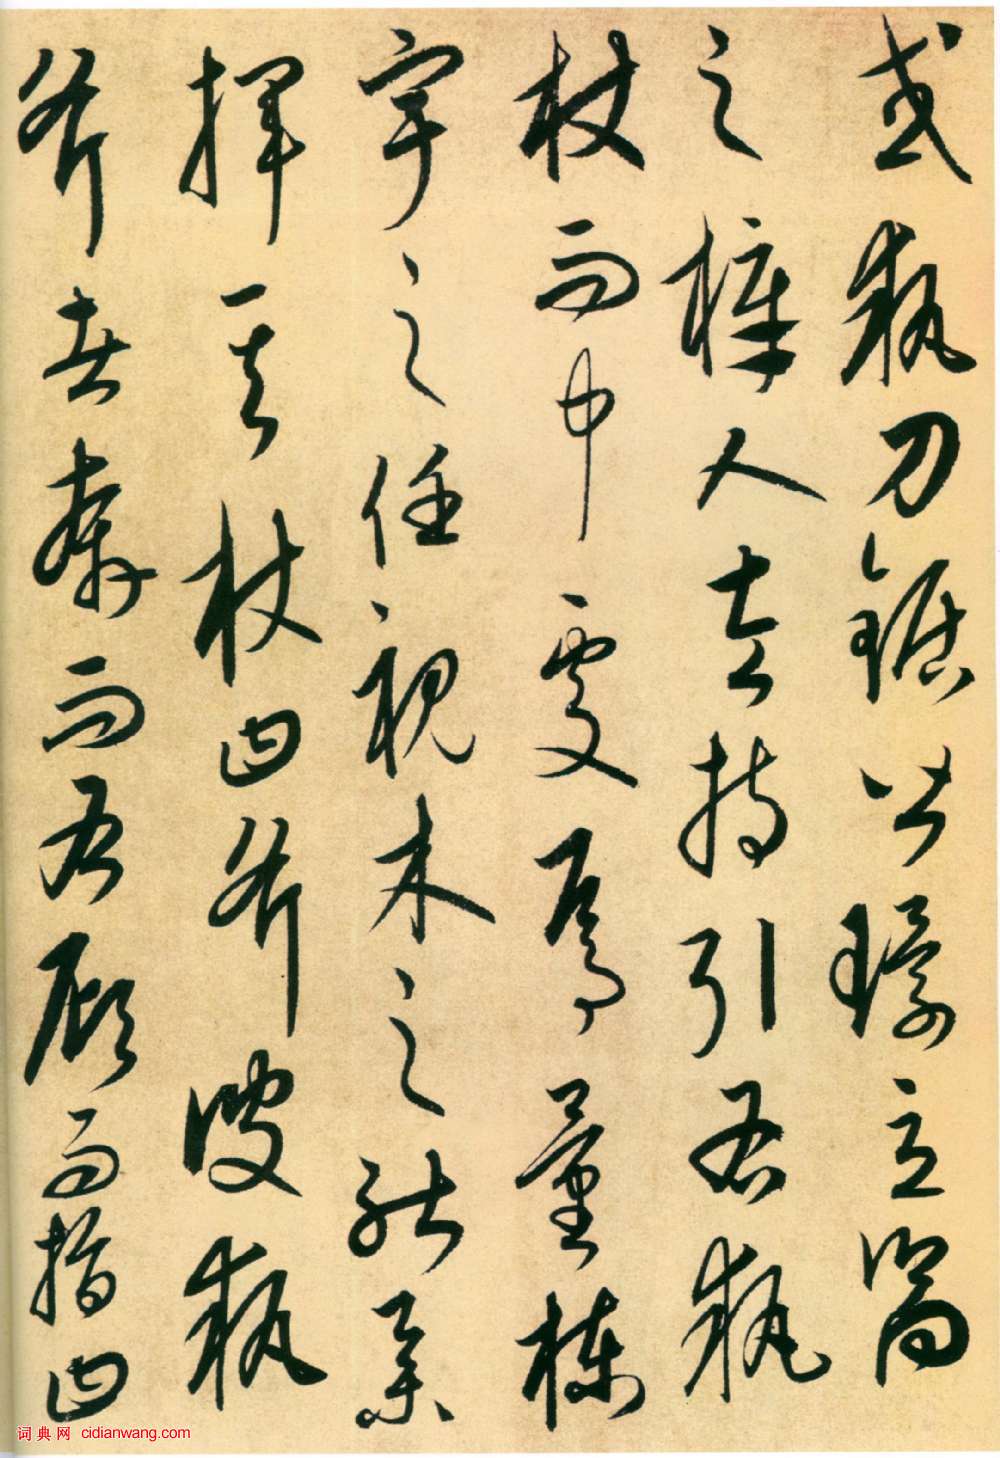 或執刀鋸皆環立嚮
之梓人左持引右執
杖而中處焉量棟
宇之任視木之能舉
揮其杖曰斧彼執
斧者奔而右顧而指曰
词典网 cidianwang.com